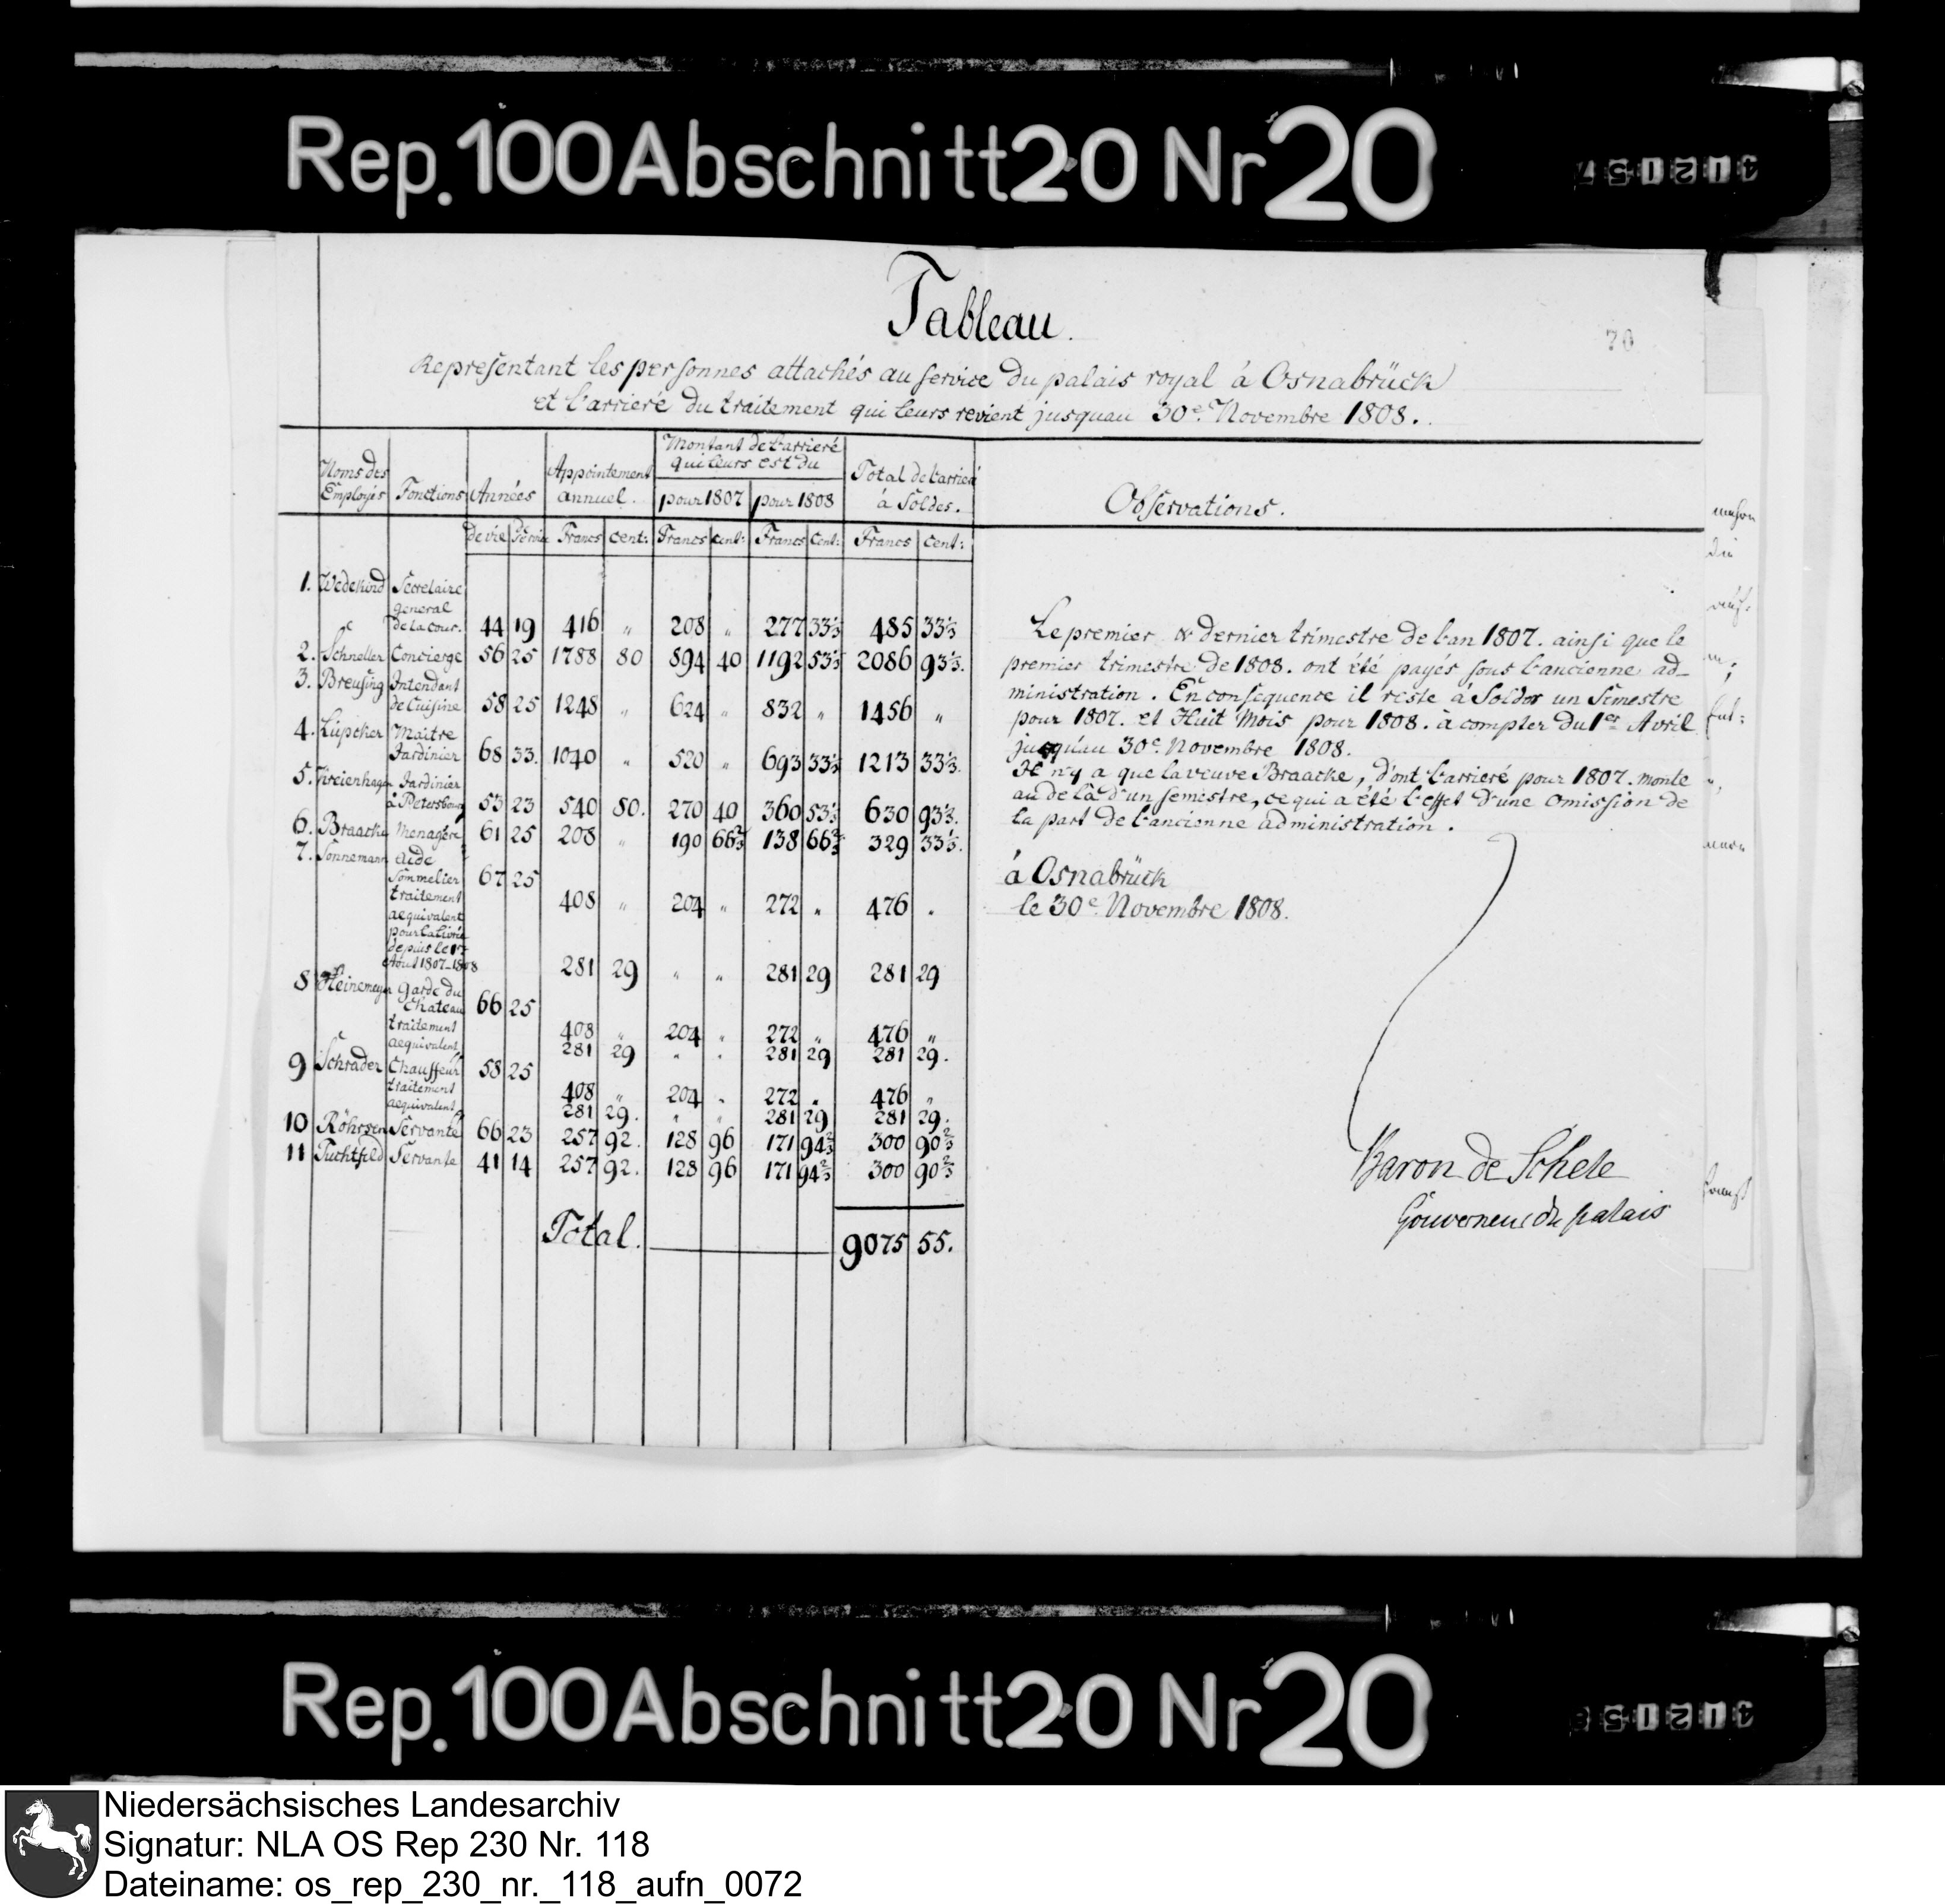 Rep. 100 Abschnitt 20 Nr 20
412157
Tableau.
70
Representant les personnes attachés au service du palais royal à Osnabrück
et l'arrieré du traitement qui leurs revient jusquau 30e. Novembre 1808.
Noms des Employés | Fonctions | Années | Appointement annuel. | Montant de l'arrieré qui leurs est du | Total de l'arrieré à Soldes. | Observations.
pour 1807 | pour 1808
de vie | Service | Francs | Cent: | Francs | Cent: | Francs | Cent: | Francs | Cent:
1. Wedekind | Secretaire
general
de la cour. | 44 | 19 | 416 | " | 208 | " | 277 | 33⅓ | 485 | 33⅓
2. Schneller | Concierge | 56 | 25 | 1788 | 80 | 894 | 40 | 1192 | 53⅓ | 2086 | 93⅓.
3. Breusing | Intendant
de Cuisine | 58 | 25 | 1248 | " | 624 | " | 832 | " | 1456 | "
4. Lüpcker | Maitre
Jardinier | 68 | 33. | 1040 | " | 520 | " | 693 | 33⅓ | 1213 | 33⅓.
5. | Jardinier
à Petersbourg | 53 | 23 | 540 | 80. | 270 | 40 | 360 | 53⅓ | 630 | 93⅓.
6. Braacke | Menagère | 61 | 25 | 208 | " | 190 | 66⅔ | 138 | 66⅔ | 329 | 33⅓.
7. Sonnemann | aide
Sommelier | 67 | 25
traitement | 408 | " | 204 | " | 272 | " | 476 | .
aequivalent
pour la livrée
depuis le 1r
Aout 1807_1808 | 281 | 29 | " | " | 281 | 29 | 281 | 29
8 Heinemeyer | Garde du
Chateau | 66 | 25
traitement | 408 | " | 204 | " | 272 | " | 476 | "
aequivalent | 281 | 29 | " | " | 281 | 29 | 281 | 29.
9 Schrader | Chauffeur | 58 | 25
traitement | 408 | " | 204 | " | 272 | " | 476 | "
aequivalent | 281 | 29. | " | " | 281 | 29 | 281 | 29.
10 Röhrsen | Servante | 66 | 23 | 257 | 92. | 128 | 96 | 171 | 94⅔ | 300 | 90⅔
11 Tuchtfeld | Servante | 41 | 14 | 257 | 92. | 128 | 96 | 171 | 94⅔ | 300 | 90⅔
Total. 9075 | 55.
Le premier & dernier trimestre de l'an 1807. ainsi que le
premier trimestre de 1808. ont été payés sous l'ancienne ad_
ministration. En consequence il reste à Solder un Semestre
pour 1807. et Huit Mois pour 1808. à compter du 1er Avril
jusqu'au 30e. Novembre 1808.
Il n'y a que la veuve Braacke, d'ont l'arrieré pour 1807. monte
au de là d'un semestre, ce qui a été l'effet d'une omission de
la part de l'ancienne administration.
à Osnabrück
le 30e. Novembre 1808.
Baron de Schele
Gouverneur du palais
Rep. 100 Abschnitt 20 Nr 20
Niedersächsisches Landesarchiv
Signatur: NLA OS Rep 230 Nr. 118
Dateiname: os_rep_230_nr._118_aufn_0072